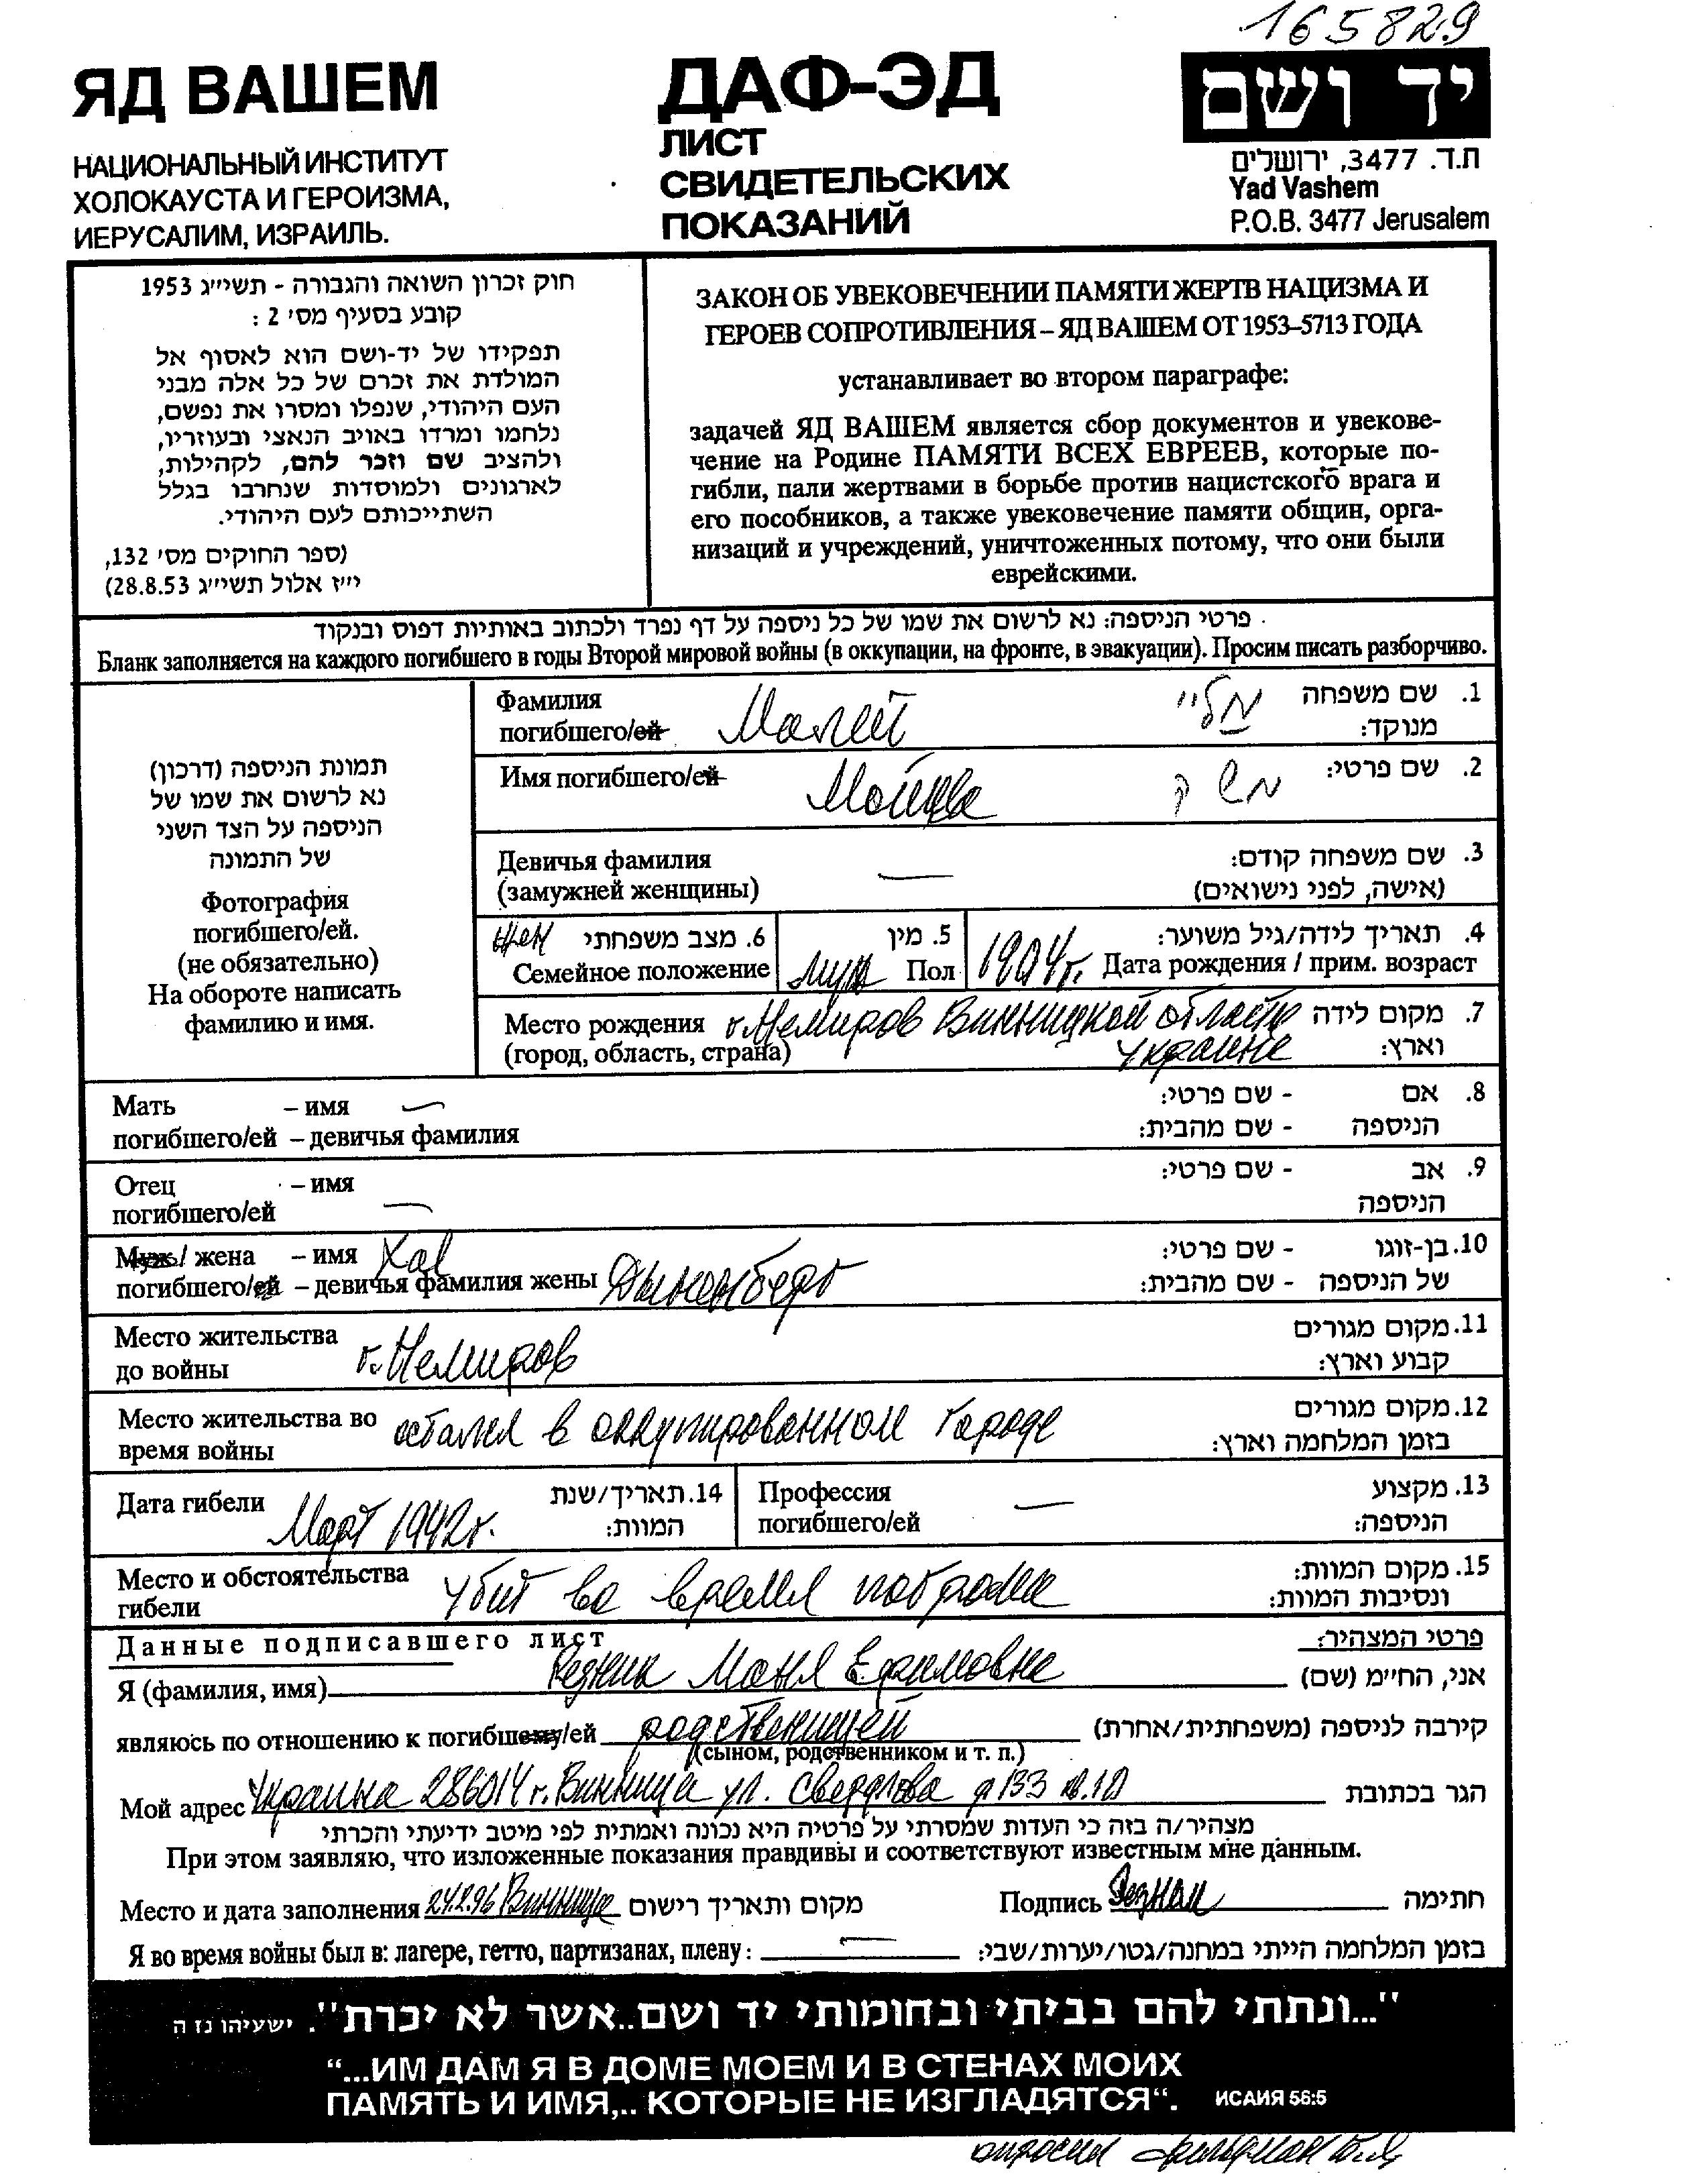 165829
ЯД ВАШЕМ
НАЦИОНАЛЬНЫЙ ИНСТИТУТ
ХОЛОКАУСТА И ГЕРОИЗМА,
ИЕРУСАЛИМ, ИЗРАИЛЬ.
ДАФ-ЭД
ЛИСТ
СВИДЕТЕЛЬСКИХ
ПОКАЗАНИЙ
יד ושם
ת.ד. 3477, ירושלים
Yad Vashem
P.O.B. 3477 Jerusalem
חוק זכרון השואה והגבורה - תשי״ג 1953
קובע בסעיף מס׳ 2 :
תפקידו של יד-ושם הוא לאסוף אל
המולדת את זכרם של כל אלה מבני
העם היהודי, שנפלו ומסרו את נפשם,
נלחמו ומרדו באויב הנאצי ובעוזריו,
ולהציב שם וזכר להם, לקהילות,
לארגונים ולמוסדות שנחרבו בגלל
השתייכותם לעם היהודי.
(ספר החוקים מס׳ 132,
י״ז אלול תשי״ג 28.8.53)
ЗАКОН ОБ УВЕКОВЕЧЕНИИ ПАМЯТИ ЖЕРТВ НАЦИЗМА И
ГЕРОЕВ СОПРОТИВЛЕНИЯ – ЯД ВАШЕМ ОТ 1953–5713 ГОДА
устанавливает во втором параграфе:
задачей ЯД ВАШЕМ является сбор документов и увекове-
чение на Родине ПАМЯТИ ВСЕХ ЕВРЕЕВ, которые по-
гибли, пали жертвами в борьбе против нацистского врага и
его пособников, а также увековечение памяти общин, орга-
низаций и учреждений, уничтоженных потому, что они были
еврейскими.
פרטי הניספה: נא לרשום את שמו של כל ניספה על דף נפרד ולכתוב באותיות דפוס ובנקוד
Бланк заполняется на каждого погибшего в годы Второй мировой войны (в оккупации, на фронте, в эвакуации). Просим писать разборчиво.
תמונת הניספה (דרכון)
נא לרשום את שמו של
הניספה על הצד השני
של התמונה
Фотография
погибшего/ей.
(не обязательно)
На обороте написать
фамилию и имя.
Фамилия 1. שם משפחה
погибшего/ей Малий מליי מנוקד:
Имя погибшего/ей Мойшва 2. שם פרטי:
Девичья фамилия 3. שם משפחה קודם:
(замужней женщины) — (אישה, לפני נישואים)
жен 6. מצב משפחתי 5. מין 4. תאריך לידה/גיל משוער:
Семейное положение муж Пол 1904г. Дата рождения / прим. возраст
Место рождения г. Немиров Винницкой области 7. מקום לידה
(город, область, страна) Украине וארץ:
Мать – имя — 8. אם - שם פרטי:
погибшего/ей – девичья фамилия הניספה - שם מהבית:
Отец – имя 9. אב - שם פרטי:
погибшего/ей — הניספה
Муж / жена – имя Хав 10. בן-זוגו - שם פרטי:
погибшего/ей – девичья фамилия жены Дыненберг של הניספה - שם מהבית:
Место жительства 11. מקום מגורים
до войны г. Немиров קבוע וארץ:
Место жительства во остался в оккупированном городе 12. מקום מגורים
время войны בזמן המלחמה וארץ:
Дата гибели Март 1942г. 14. תאריך/שנת המוות:
Профессия 13. מקצוע
погибшего/ей — הניספה:
Место и обстоятельства 15. מקום המוות:
гибели Убит во время погрома ונסיבות המוות:
Данные подписавшего лист פרטי המצהיר:
Я (фамилия, имя) Резник Маня Ефимовна אני, החי״מ (שם)
являюсь по отношению к погибшему/ей родственницей קירבה לניספה (משפחתית/אחרת)
(сыном, родственником и т. п.)
Мой адрес Украина 286014 г. Винница ул. Свердлова д 133 кв. 10 הגר בכתובת
מצהיר/ה בזה כי העדות שמסרתי על פרטיה היא נכונה ואמתית לפי מיטב ידיעתי והכרתי
При этом заявляю, что изложенные показания правдивы и соответствуют известным мне данным.
Место и дата заполнения Винница מקום ותאריך רישום Подпись חתימה
Я во время войны был в: лагере, гетто, партизанах, плену : — בזמן המלחמה הייתי במחנה/גטו/יערות/שבי:
"...ונתתי להם בביתי ובחומותי יד ושם..אשר לא יכרת". ישעיהו נז ה
“...ИМ ДАМ Я В ДОМЕ МОЕМ И В СТЕНАХ МОИХ
ПАМЯТЬ И ИМЯ,.. КОТОРЫЕ НЕ ИЗГЛАДЯТСЯ“. ИСАИЯ 56:5